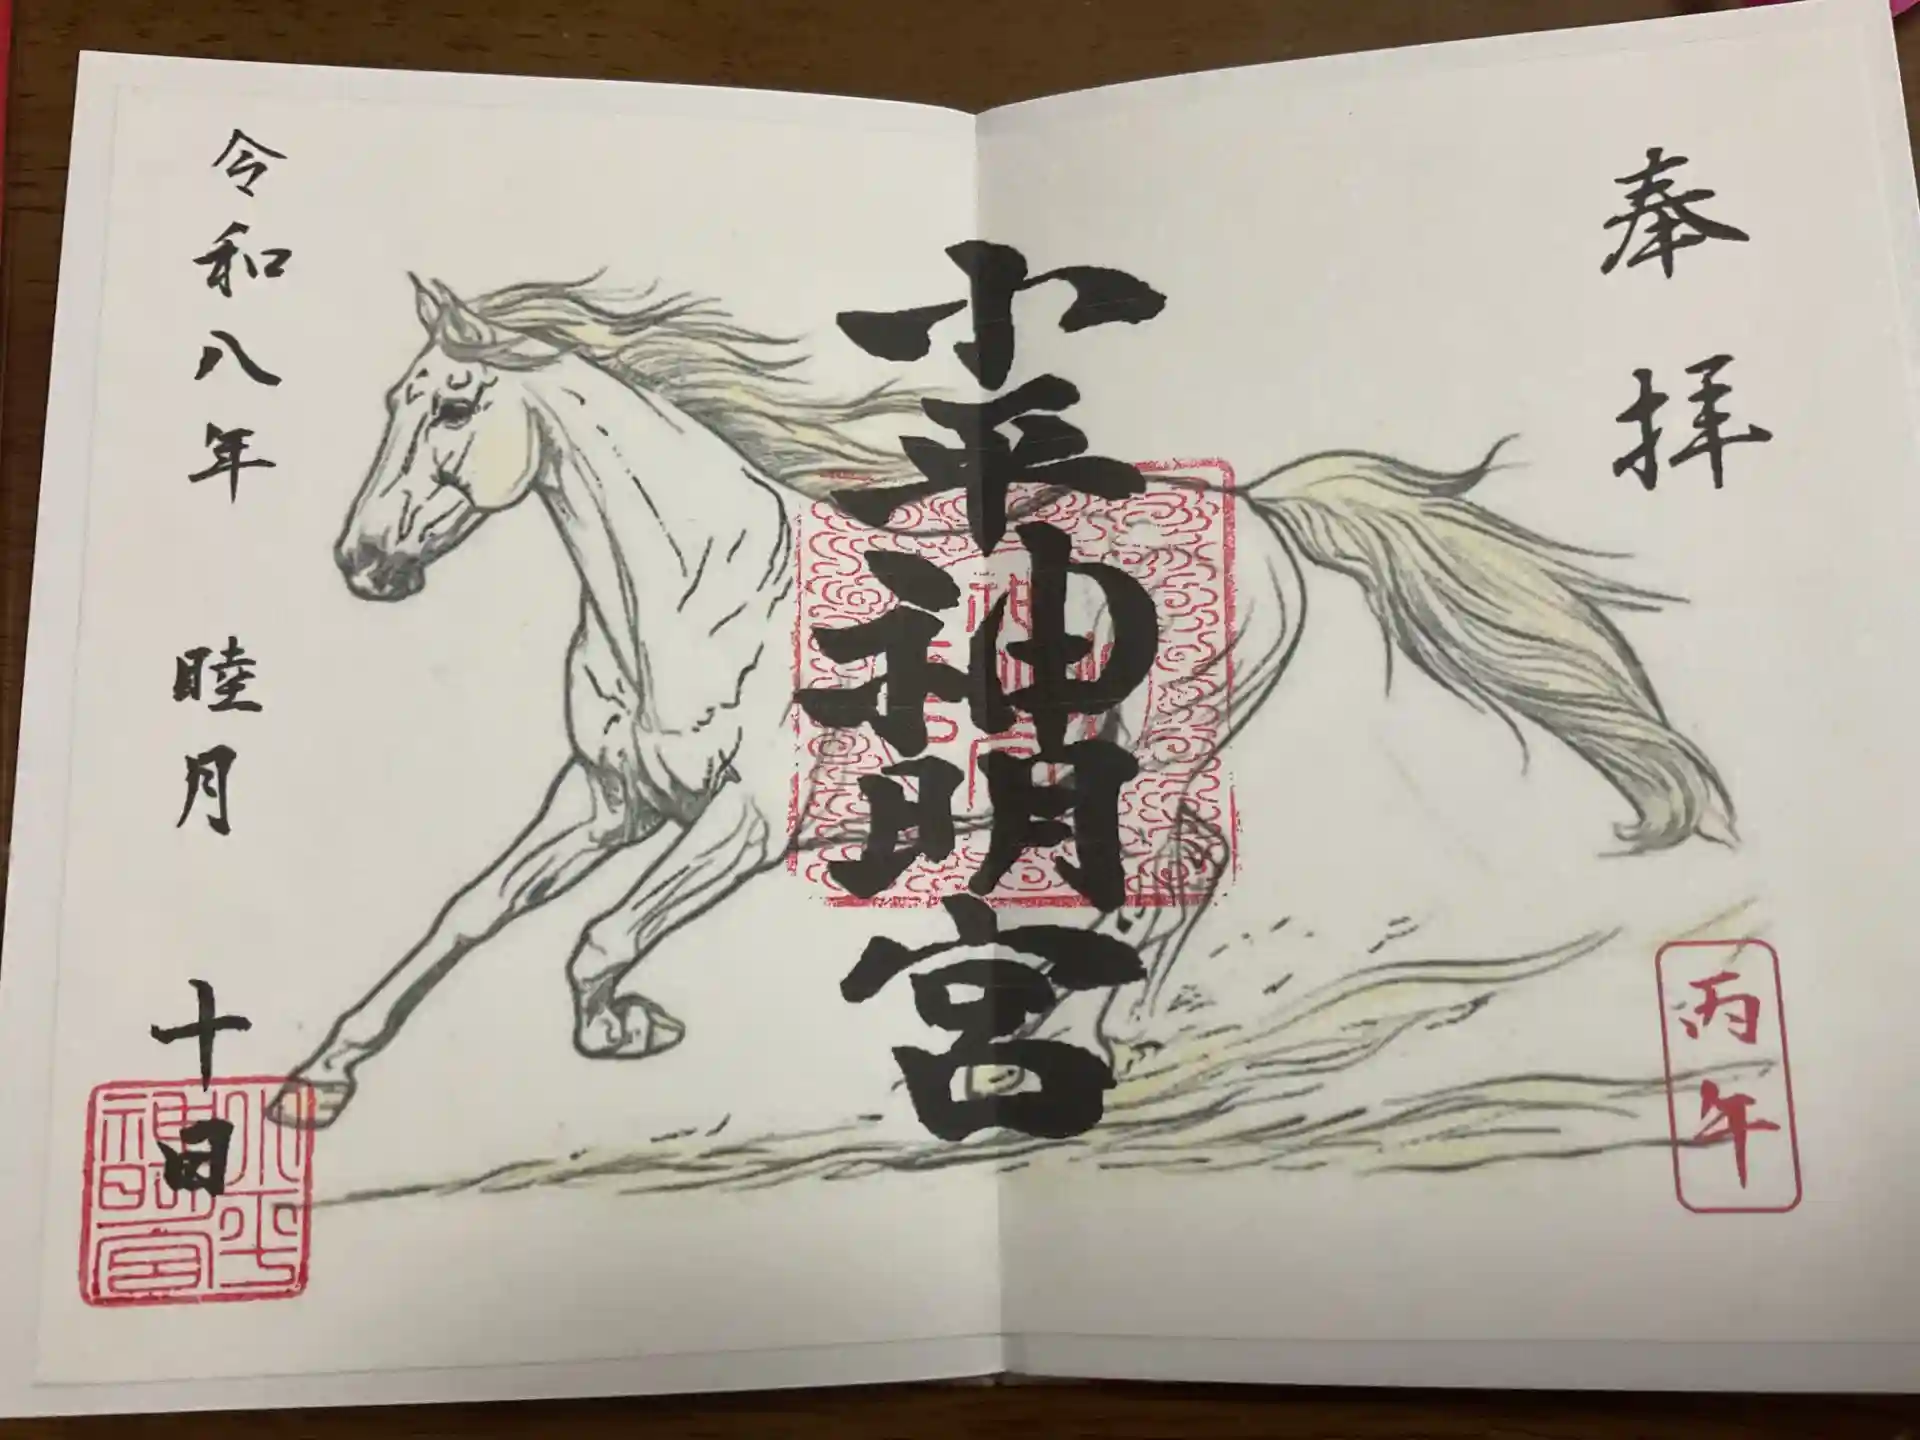 奉拝
丙午
小平神明宮
令和八年 睦月 十日
小平
神明宮